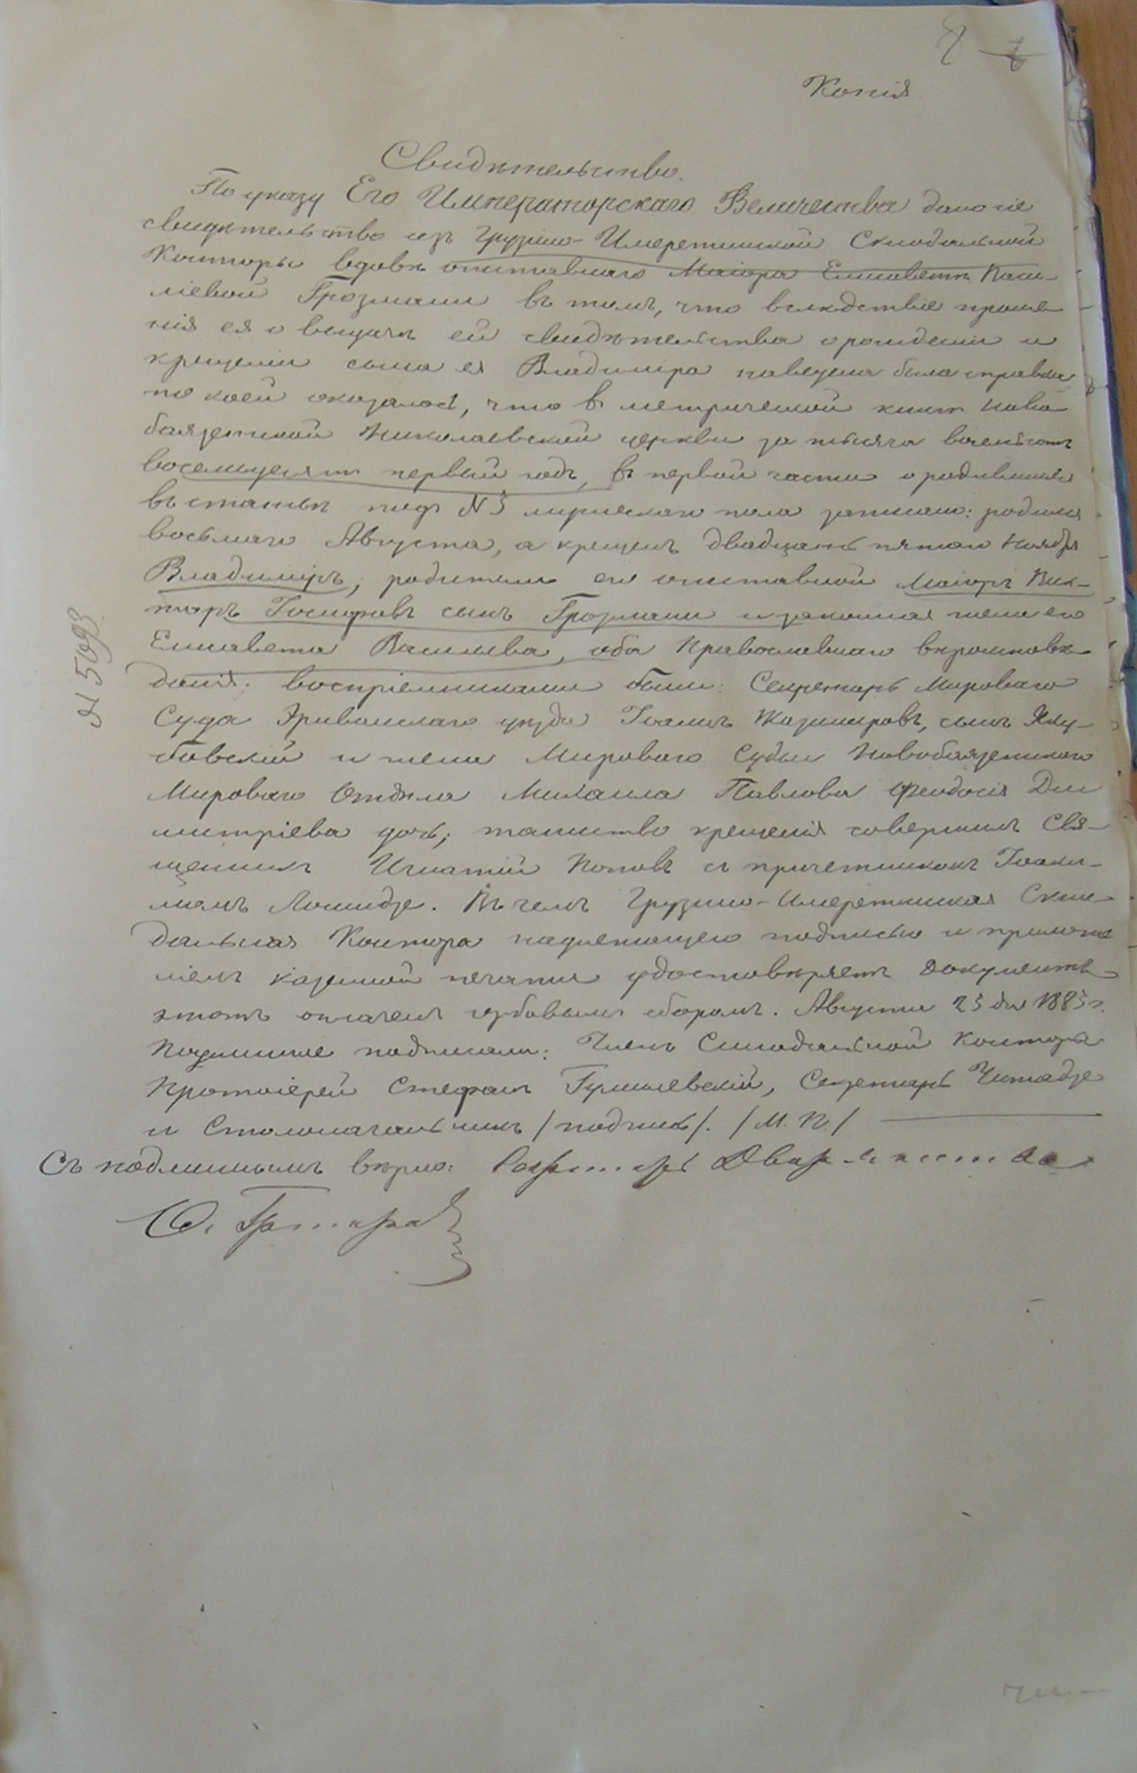 8
Копія
Свидѣтельство.
По указу Его Императорскаго Величества дано сіе
свидѣтельство изъ Грузино-Имеретинской Сѵнодальной
Конторы вдовѣ отставнаго Маіора Елисаветѣ Васи-
ліевой Грозмани въ томъ, что вслѣдствіе проше-
нія ея о выдачѣ ей свидѣтельства о рожденіи и
крещеніи сына ея Владиміра наведена была справка
по коей оказалось, что въ метрической книгѣ Ново
баязетской Николаевской церкви за тысяча восемьсотъ
восемьдесятъ первый годъ, въ первой части о родившихся
въ статьѣ подъ № 5 мужескаго пола записано: родился
восьмаго Августа, а крещенъ двадцать пятаго Ноября
Владиміръ; родители его отставной Маіоръ Вик-
торъ Іосифовъ сынъ Грозмани и законная жена его
Елисавета Васильева, оба Православнаго вѣроисповѣ-
данія; воспріемниками были: Секретарь Мироваго
Суда Эриванскаго уѣзда Іоаннъ Казимировъ, сынъ Яку-
бовскій и жена Мироваго Судьи Новобаязетскаго
Мироваго Отдѣла Михаила Павлова Феодосія Ди
митріева дочь; таинство крещенія совершилъ Свя-
щенникъ Игнатій Поповъ съ причетникомъ Іоаки-
момъ Лошидзе. Въ чемъ Грузино-Имеретинская Сѵно
дальная Контора надлежащею подписью и приложе
ніемъ казенной печати удостовѣряетъ документъ
этотъ оплаченъ гербовымъ сборомъ. Августа 25 дня 1885 г.
Подлинное подписали: Членъ Синодальной Конторы
Протоіерей Стефанъ Гумилевскій, Секретарь Читадзе
и Столоначальникъ /подпись/. /М. П/
Съ подлиннымъ вѣрно: Секретарь Дворянства
№ 5093